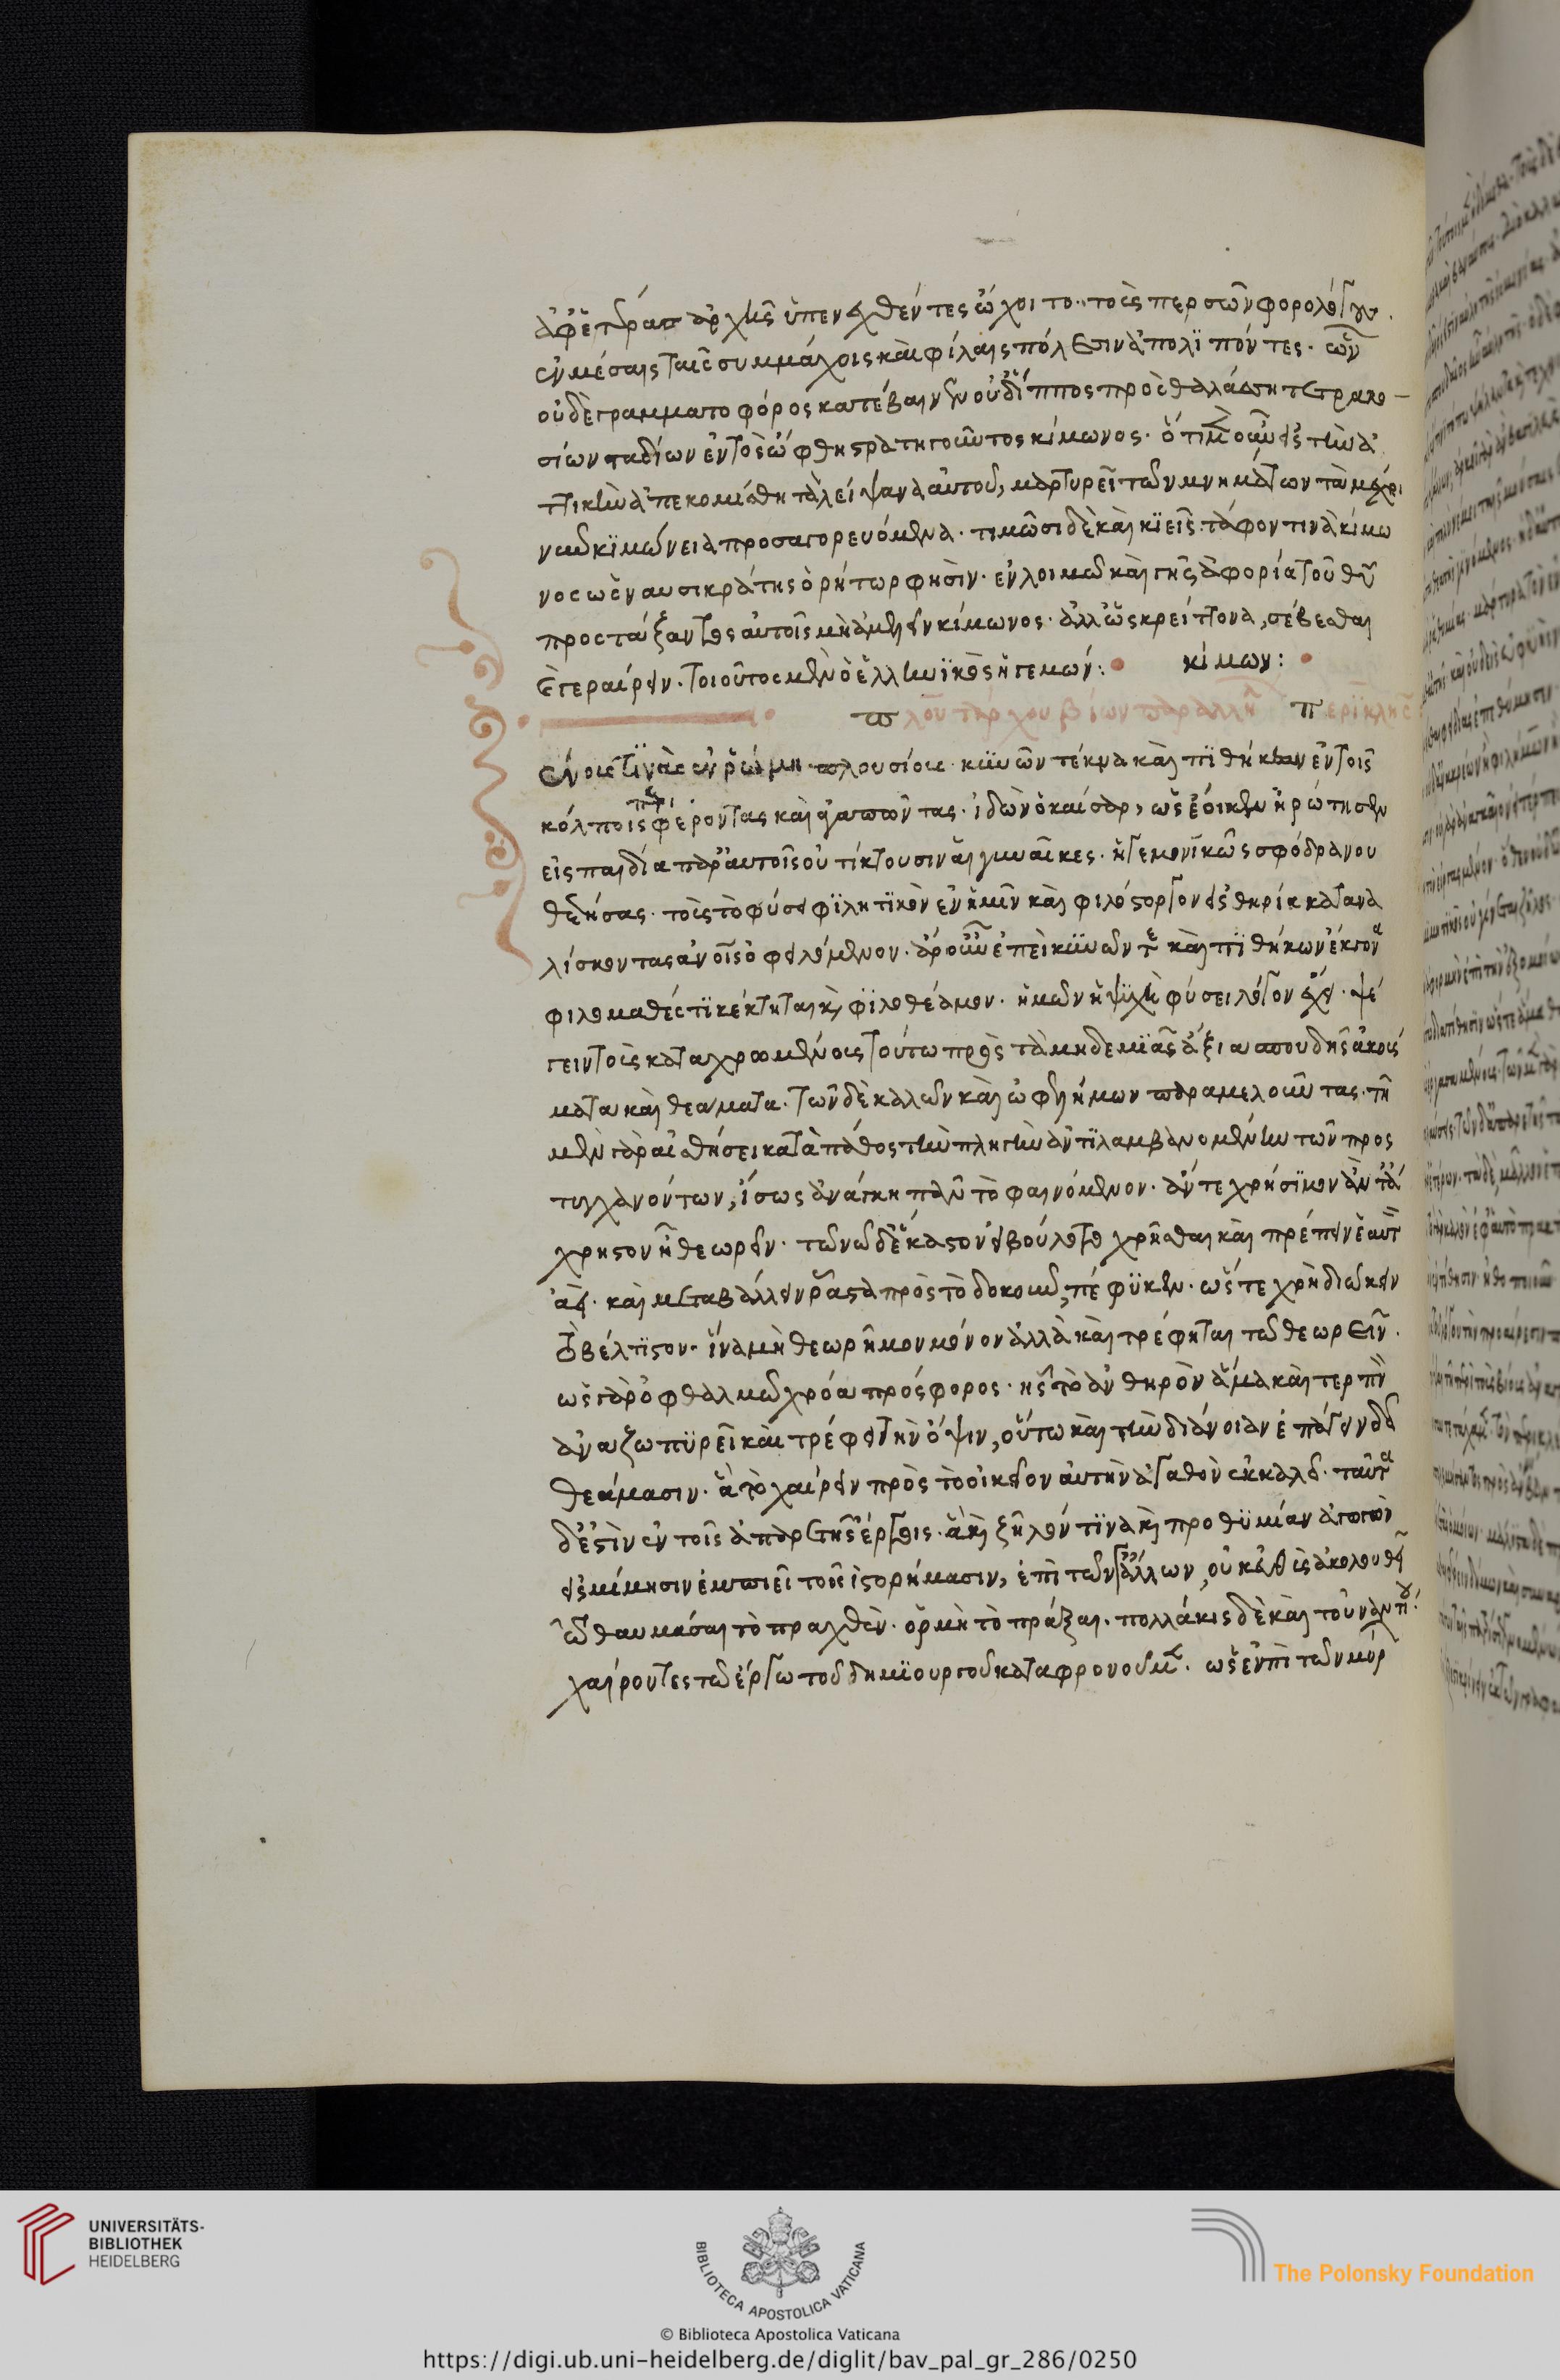 ἀφ' ἑτέρας ἀρχῆς ὑπενεχθέντες ὤχοιτο. τοὺς περσῶν φορολόγους.
ἐν μέσαις ταῖς συμμάχοις καὶ φίλαις πόλεσιν ἀπολιπόντες. ὧν
οὐδὲ γραμματοφόρος κατέβαινεν οὐδ' ἵππος πρὸς θαλάσση τετρακο
σίων σταδίων ἐντὸς ὤφθη στρατηγοῦντος κίμωνος. ὅτι μὲν οὖν εἰς τὴν ἀτ
τικὴν ἀπεκομίσθη τὰ λείψανα αὐτοῦ, μαρτυρεῖ τῶν μνημάτων τὰ μέχρι
νῦν κιμώνεια προσαγορευόμενα. τιμῶσι δὲ καὶ κιεῖς τάφον τινὰ κίμω
νος ὡς ναυσικράτης ὁ ῥήτωρ φησὶν. ἐν λοιμῶ καὶ γῆς ἀφορία τοῦ θεοῦ
προστάξαντος αὐτοῖς μὴ ἀμελεῖν κίμωνος. ἀλλ' ὡς κρείττονα, σέβεσθαι
γεραίρειν. τοιοῦτος μὲν ὁ ἑλληνικὸς ἡγεμών: κίμων:
πλουτάρχου βίων παραλλή περικλῆς
ἐνους τινὰς ἐν ῥώμη πλουσίους κυνῶν τέκνα καὶ πιθήκων ἐν τοῖς
κόλποις περιφέροντας καὶ ἀγαπῶντας. ἰδὼν ὁ καίσαρ, ὡς ἔοικεν ἠρώτησεν
εἰ παιδία παρ' αὐτοῖς οὐ τίκτουσιν αἱ γυναῖκες. ἡγεμονικῶς σφόδρα νου
θετήσας. τοὺς τὸ φύσει φιλητικὸν ἐν ἡμῖν καὶ φιλόστοργον εἰς θηρία κατανα
λίσκοντας ἀνοις ὀφειλόμενον. ἆρ' οὖν ἐπεὶ κυνῶν τε καὶ πιθήκων ἔκγονα
φιλομαθές τι κέκτηται καὶ φιλοθέαμον. ἡμῶν ἡ ψυχὴ φύσει λόγον ἔχει. ψέ
γειν τοὺς καταχρωμένους τούτω πρὸς τὰ μηδεμιᾶς ἄξια σπουδῆς ἀκούς
ματα καὶ θεάματα. τῶν δὲ καλῶν καὶ ὠφελίμων παραμελοῦντας. τῆ
μὲν γὰρ αἰσθήσει κατὰ πάθος τὴν πληγὴν ἀντιλαμβανομένην τῶν προς
τυγχανόντων, ἴσως ἀνάγκη πᾶν τὸ φαινόμενον. ἄν τε χρήσιμον ἄν τ' ἄ
χρηστον ἦ θεωρεῖν. τῶ νῶ δ' ἕκαστον εἰ βούλοιτο χρῆσθαι καὶ τρέπειν ἑαυτὸν
ἀεὶ. καὶ μεταβάλλειν ῥᾶστα πρὸς τὸ δοκοῦν, πέφυκεν. ὥστε χρὴ διώκειν
τὸ βέλτιστον. ἵνα μὴ θεωρῆ μόνον ἀλλὰ καὶ τρέφηται τῶ θεωρεῖν.
ὡς γὰρ ὀφθαλμῶ χρόα πρόσφορος. ἧς τὸ ἀνθηρὸν ἅμα καὶ τερπνὸν
ἀναζωπυρεῖ καὶ τρέφει τὴν ὄψιν, οὕτω καὶ τὴν διάνοιαν ἐπάγειν δεῖ
θεάμασιν. ἃ τὸ χαίρειν πρὸς τὸ οἰκεῖον αὐτὴν ἀγαθὸν ἐκκαλεῖ. ταῦτα
δ' ἐστὶν ἐν τοῖς ἀπ' ἀρετῆς ἔργοις. ἃ καὶ ζῆλόν τινα καὶ προθυμίαν ἀγωγὸν
εἰς μίμησιν ἐμποιεῖ τοῖς ἱστορήμασιν, ἐπὶ τῶν γ' ἄλλων, οὐκ εὐθὺς ἀκολουθεῖ
τῶ θαυμάσαι τὸ πραχθὲν. ὁρμὴ τὸ πρᾶξαι. πολλάκις δὲ καὶ τοὐναντίου.
χαίροντες τῶ ἔργω τοῦ δημιουργοῦ καταφρονοῦμεν. ὡς ἐν ἐπὶ τῶν μύρ
UNIVERSITÄTS-
BIBLIOTHEK
HEIDELBERG
BIBLIOTECA APOSTOLICA VATICANA
The Polonsky Foundation
© Biblioteca Apostolica Vaticana
https://digi.ub.uni-heidelberg.de/diglit/bav_pal_gr_286/0250